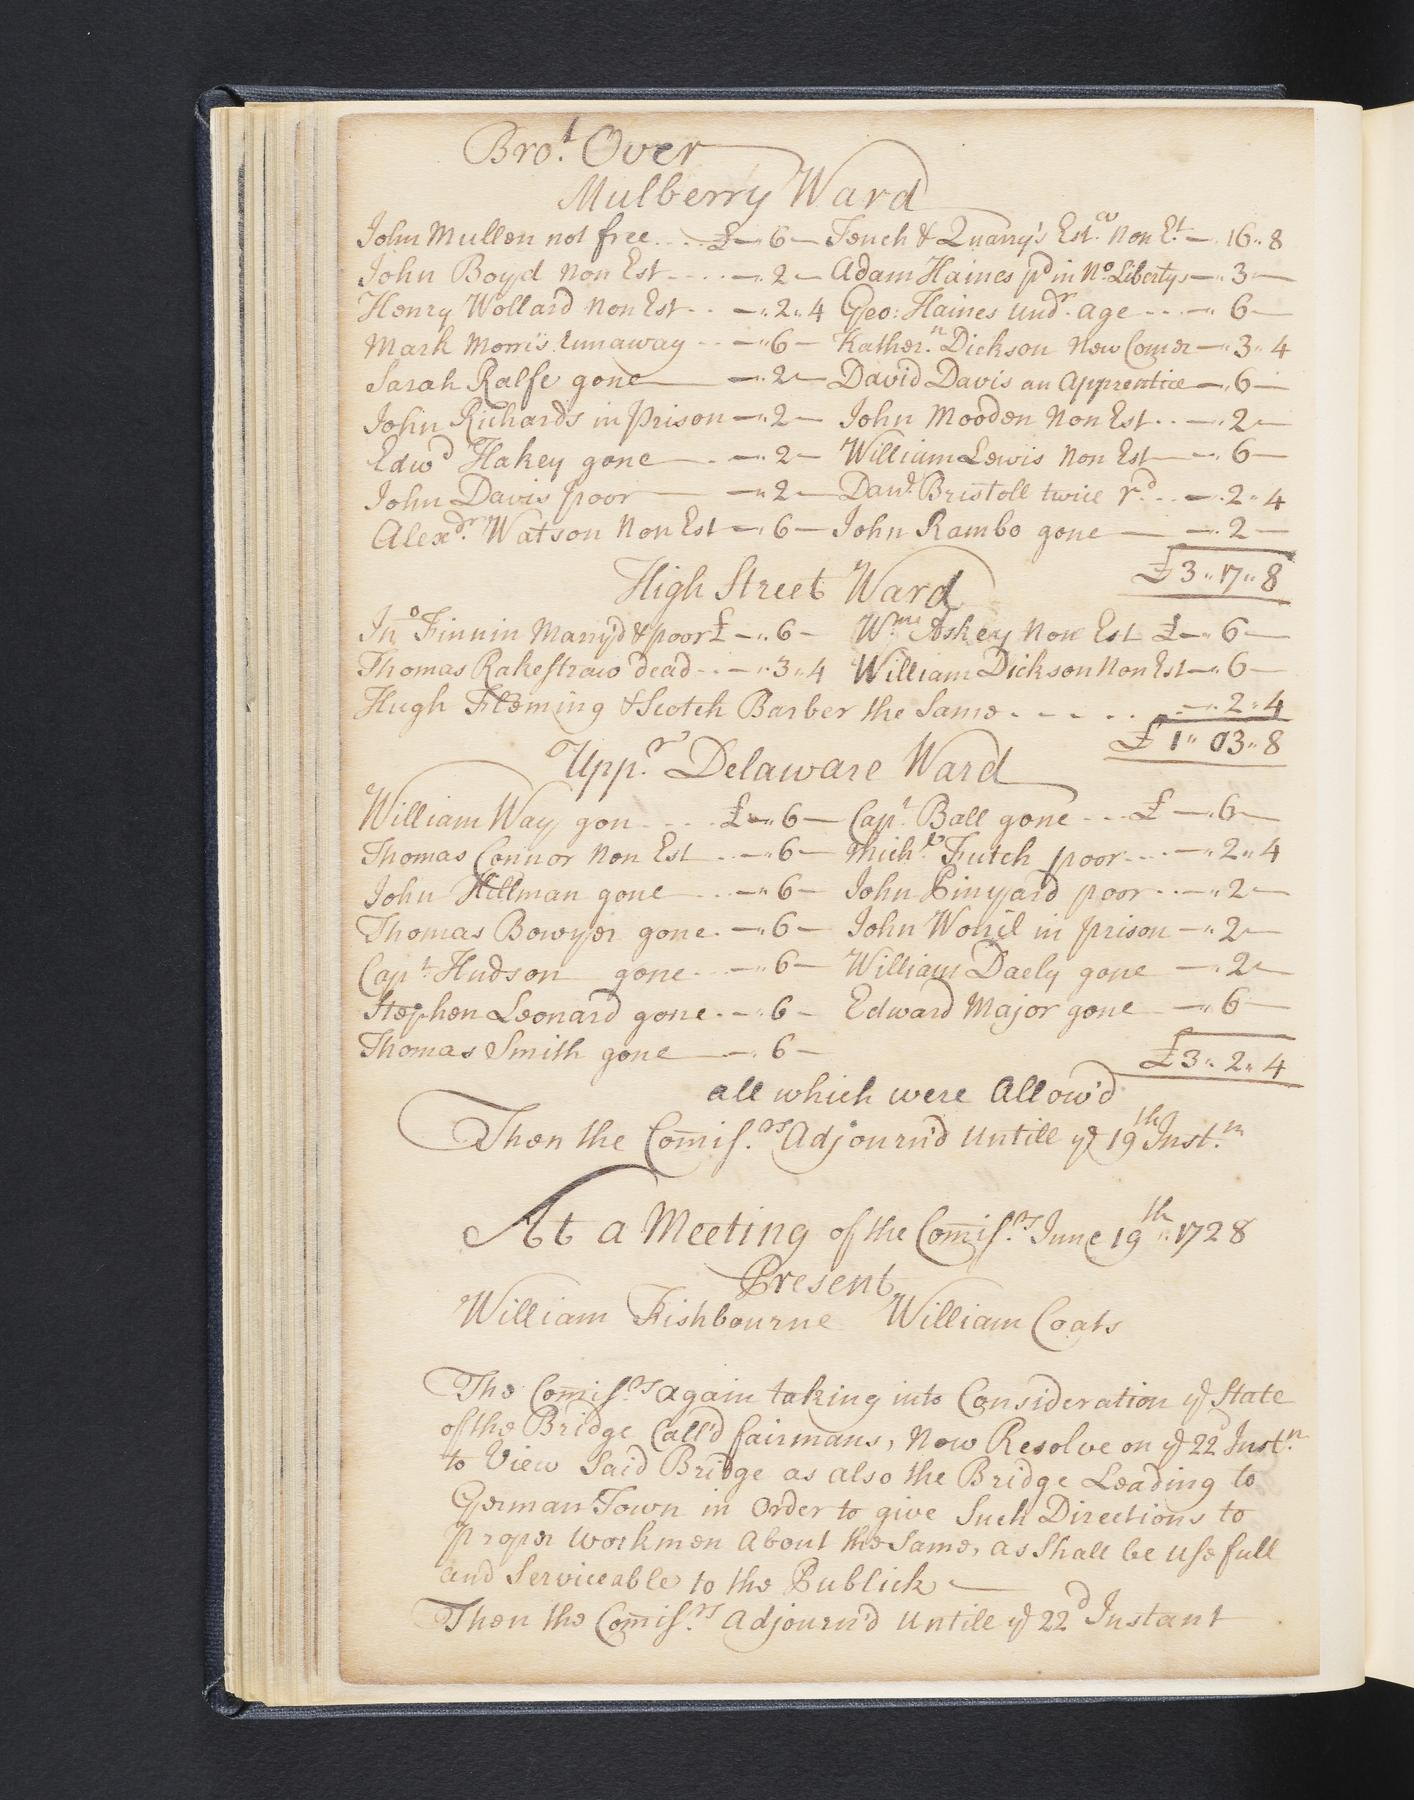 Bro.t Over
Mulberry Ward
John Mullen not free .... £ — 6 — Tench & Quarry's Est. Non E.t — „ 16 „ 8
John Boyd Non Est .... — „ 2 — Adam Haines p.d in N.o Libertys — „ 3 —
Henry Wollard Non Est .. — „ 2 „ 4 Geo: Haines und.r age ... — „ 6 —
Mark Morris runaway .. — „ 6 — Kather.n Dickson New Comer — „ 3 „ 4
Sarah Ralfe gone — „ 2 — David Davis an Apprentice — „ 6 —
John Richards in Prison — „ 2 — John Mooden Non Est .. — „ 2 —
Edw.d Hakey gone . — „ 2 — William Lewis Non Est — „ 6 —
John Davis poor — „ 2 — Dan.l Bristoll twice r.d .. — „ 2 „ 4
Alex.dr Watson Non Est — „ 6 — John Rambo gone — „ 2 —
£ 3 „ 17 „ 8
High Street Ward
Jn.o Finnin Marry'd & poor £ — „ 6 — W.m Askey Non Est £ — „ 6 —
Thomas Rakestraw dead .. — „ 3 „ 4 William Dickson Non Est — „ 6 —
Hugh Fleming & Scotch Barber the Same . . . . — „ 2 „ 4
£ 1 „ 03 „ 8
Upp.r Delaware Ward
William Way gon .... £ — „ 6 — Cap.t Ball gone ... £ — „ 6 —
Thomas Connor Non Est .. — „ 6 — Mich.l Futch poor ... — „ 2 „ 4
John Hillman gone .. — „ 6 — John Pinyard poor .. — „ 2 —
Thomas Bowyer gone . — „ 6 — John Worril in prison — „ 2 —
Cap.t Hudson gone .. — „ 6 — William Daely gone — „ 2 —
Stephen Leonard gone . — „ 6 — Edward Major gone — „ 6 —
Thomas Smith gone — „ 6 —
£ 3 „ 2 „ 4
all which were Allow'd
Then the Comiss.rs Adjourn'd Untill ye 19th Inst.m
At a Meeting of the Comiss.rs June 19th: 1728
Present
William Fishbourne William Coats
The Comiss.rs again taking into Consideration ye State
of the Bridge Call'd fairmans, Now Resolve on ye 22d Inst.n
to View Said Bridge as also the Bridge Leading to
German Town in Order to give Such Directions to
proper Workmen About the Same, as Shall be Usefull
and Serviceable to the Publick —
Then the Comiss.rs Adjourn'd Untill ye 22d Instant